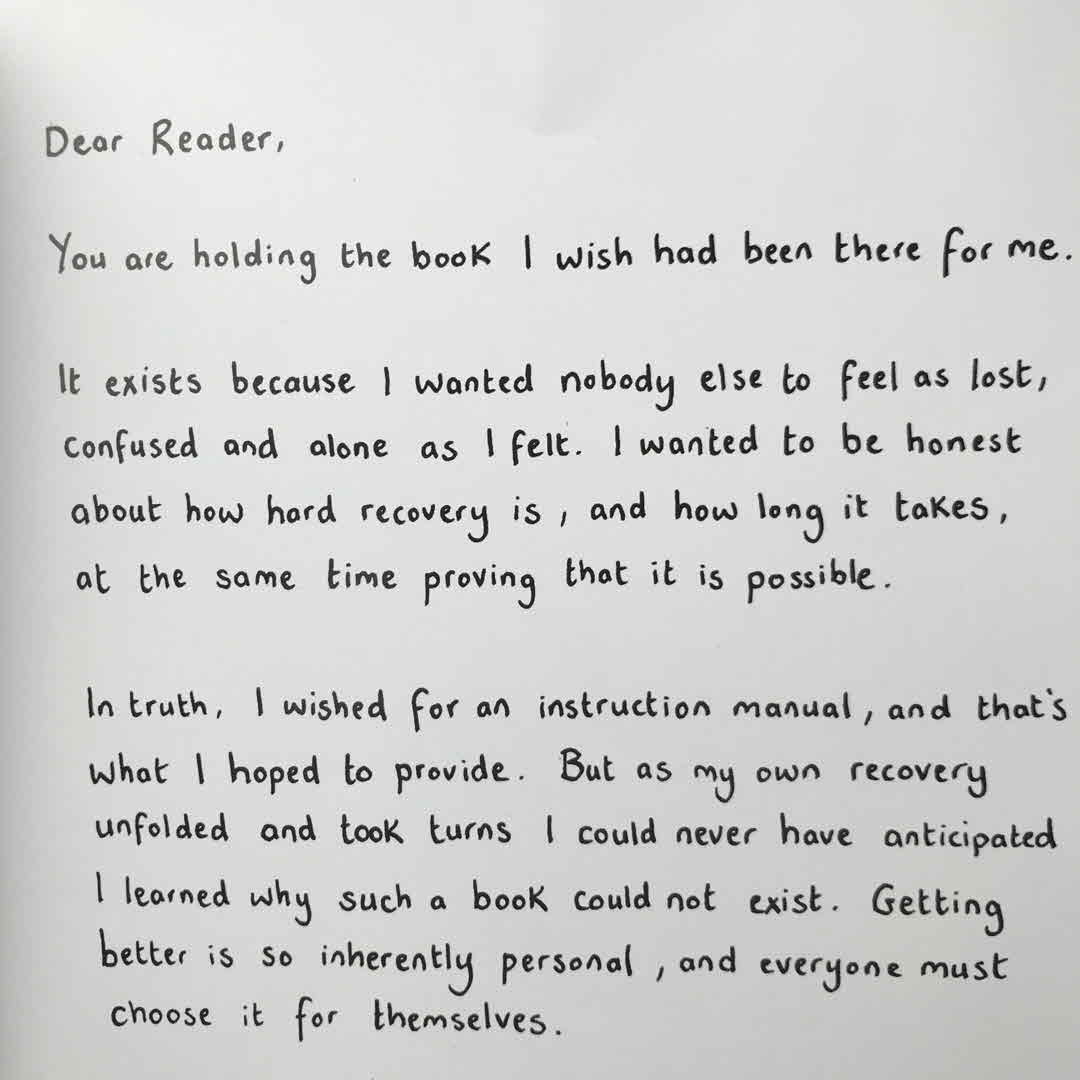 Dear Reader,
You are holding the book I wish had been there for me.
It exists because I wanted nobody else to feel as lost,
confused and alone as I felt. I wanted to be honest
about how hard recovery is, and how long it takes,
at the same time proving that it is possible.
In truth, I wished for an instruction manual, and that's
what I hoped to provide. But as my own recovery
unfolded and took turns I could never have anticipated
I learned why such a book could not exist. Getting
better is so inherently personal, and everyone must
choose it for themselves.